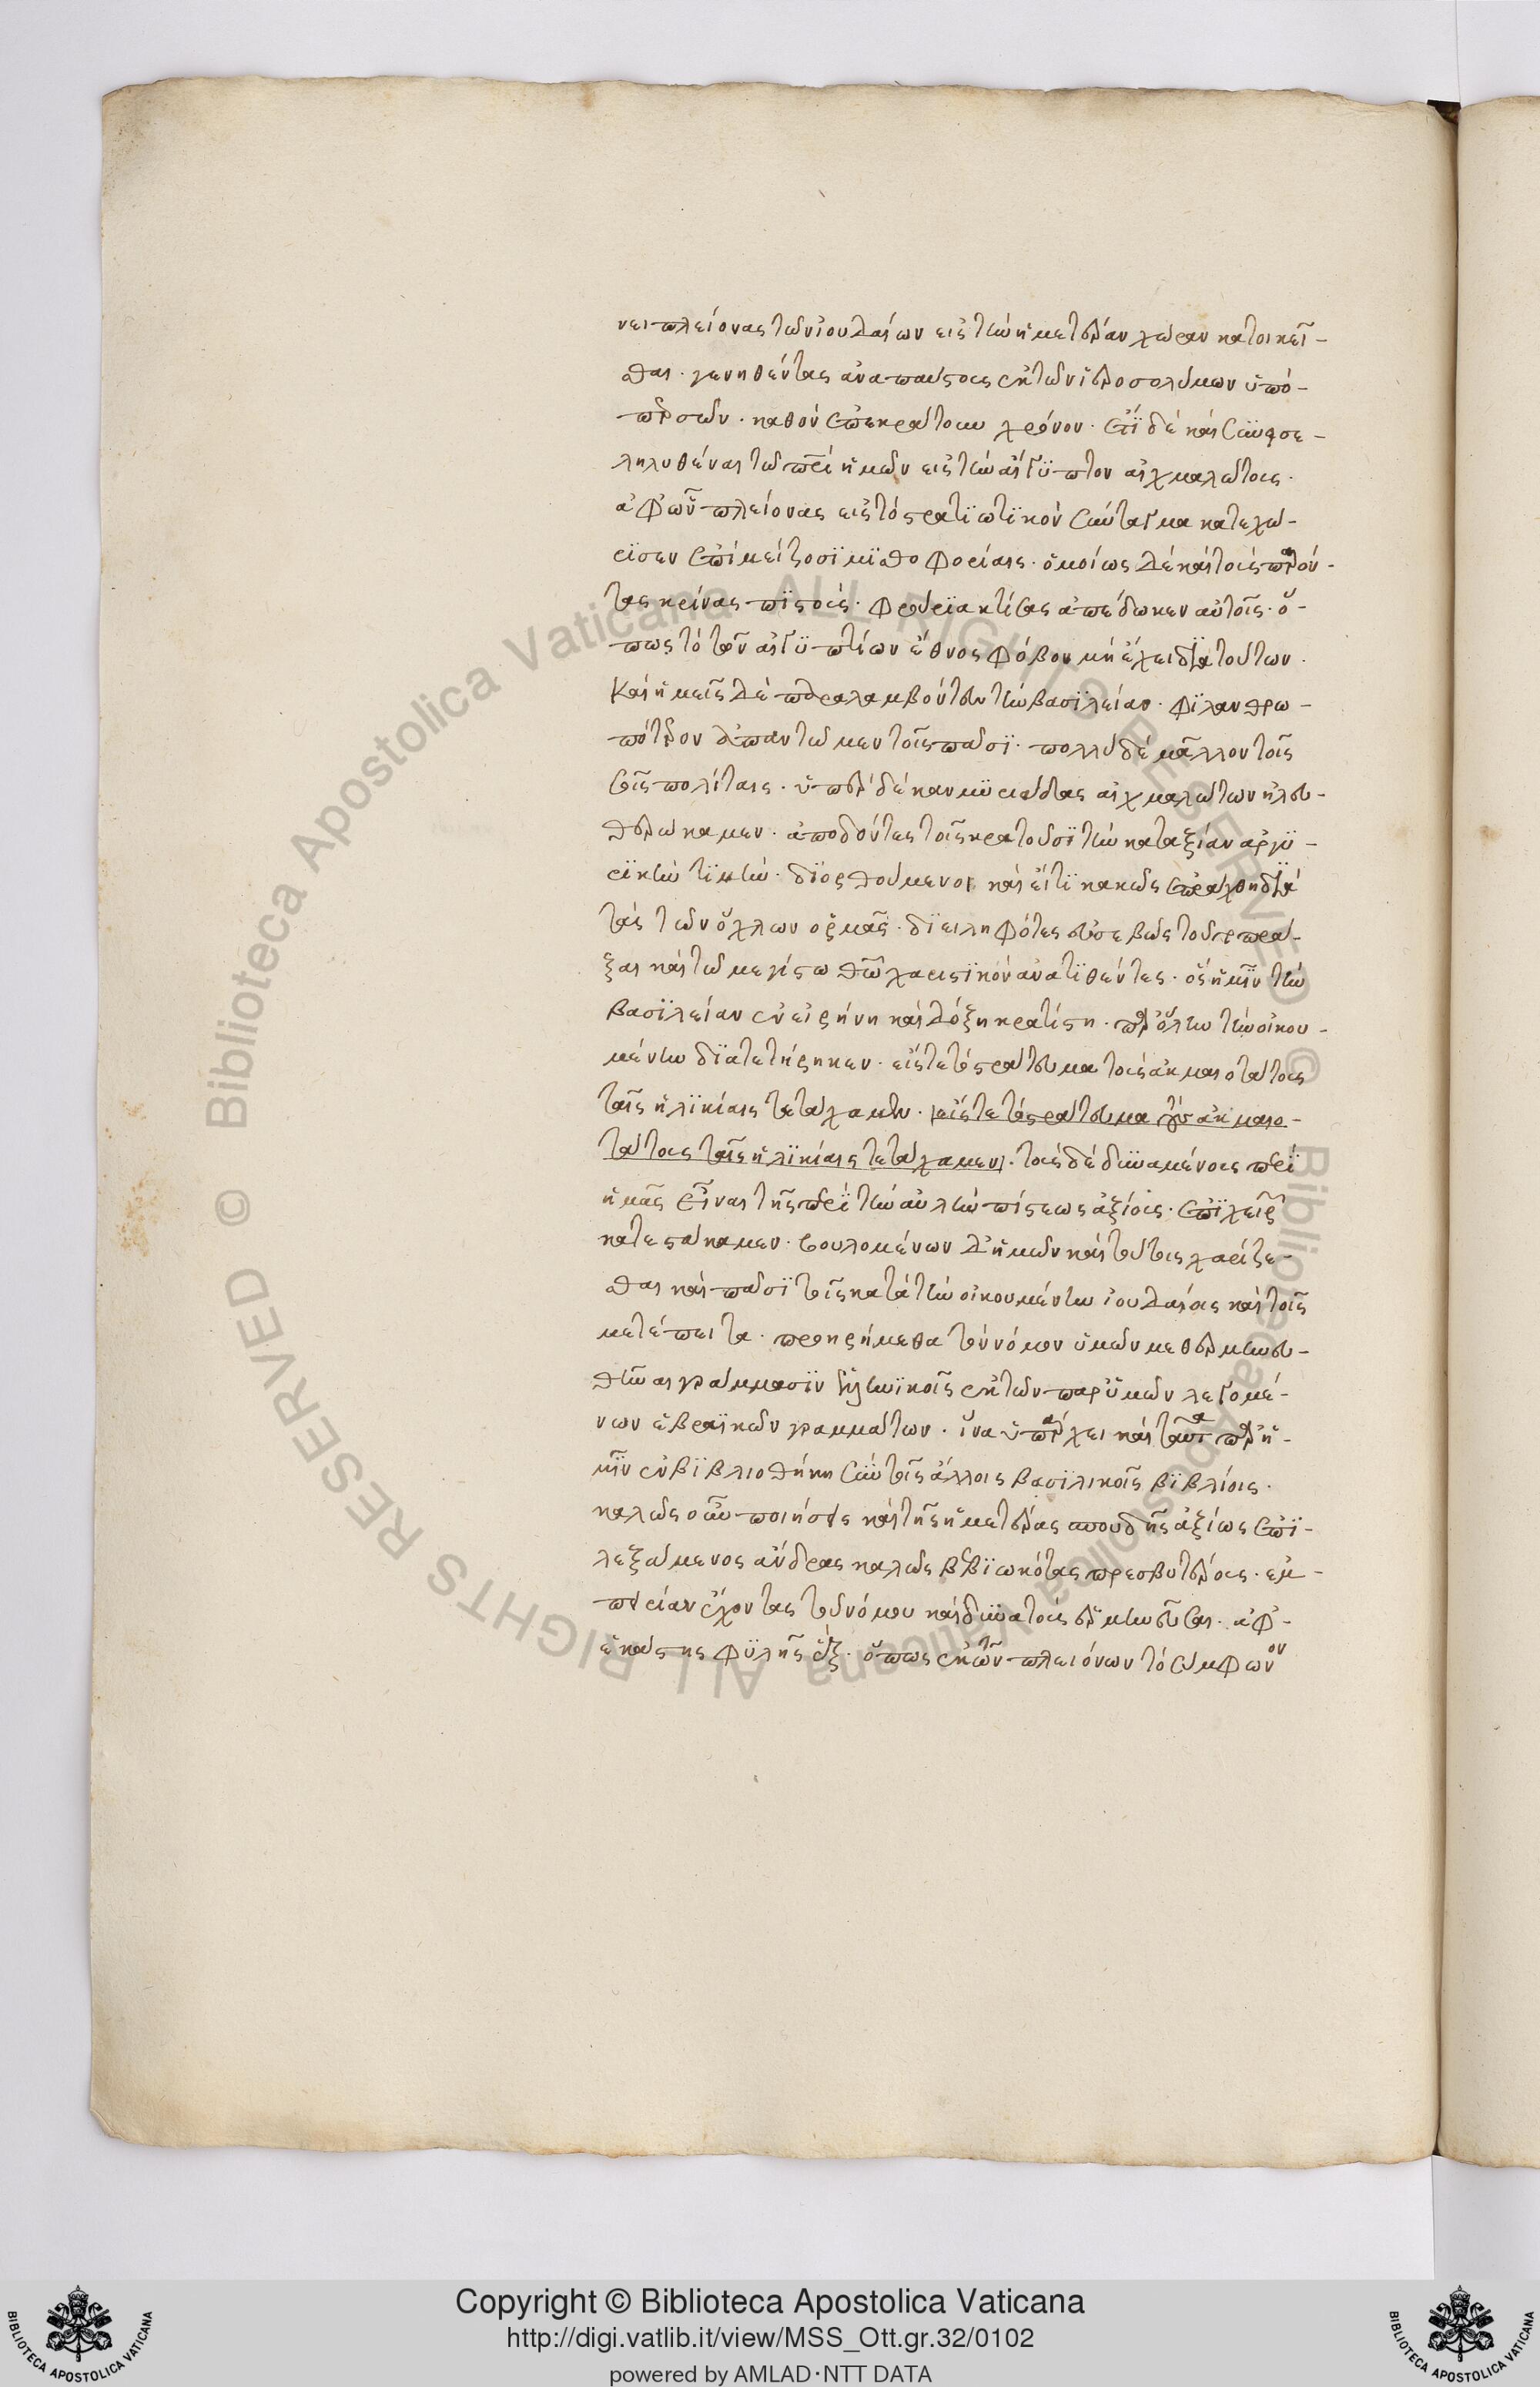 νει πλείονας τῶν ἰουδαίων εἰς τὴν ἡμετέραν χώραν κατοικεῖ-
σθαι· γενηθέντας ἀναπαύστους ἐκ τῶν ἱεροσολύμων ὑπὸ-
περσῶν· καθ᾽ ὃν ἐπεκράτουν χρόνον· ἔτι δὲ καὶ συνεισε-
ληλυθέναι τῷ πατρὶ ἡμῶν εἰς τὴν αἴγυπτον αἰχμαλώτους·
ἀφ᾽ ὧν πλείονας εἰς τὸ στρατιωτικὸν σύνταγμα κατεχώ-
ρισεν ἐπὶ μείζοσι μισθοφορίαις· ὁμοίως δὲ καὶ τοὺς παρόν-
τας κρίνας πιστοὺς· φρούρια κτίσας ἀπέδωκεν αὐτοῖς· ὅ-
πως τὸ τῶν αἰγυπτίων ἔθνος φόβον μὴ ἔχει διὰ τούτων·
Καὶ ἡμεῖς δὲ παραλαμβόντες τὴν βασιλείαν· φιλανθρω-
πότερον ἀπαντῶμεν τοῖς πᾶσι· πολλὺ δὲ μᾶλλον τοῖς
σοῖς πολίταις· ὑπὲρ δέκα μυριάδας αἰχμαλώτων ἠλευ-
θερώκαμεν· ἀποδόντες τοῖς κρατοῦσι τὴν κατ᾽ ἀξίαν ἀργυ-
ρικὴν τιμὴν· διορθούμενοι καὶ εἴ τι κακῶς ἐπράχθη διὰ
τὰς τῶν ὄχλων ὁρμὰς· διειληφότες εὐσεβῶς τοῦτο πρᾶ-
ξαι καὶ τῷ μεγίστω θεῷ χαριστικὸν ἀνατιθέντες· ὃς ἡμῖν τὴν
βασιλείαν ἐν εἰρήνη καὶ δόξη κρατίστη· παρ᾽ ὅλην τὴν οἰκου-
μένην διατετήρηκεν· εἴς τε τὸ στράτευμα τοὺς ἀκμαιοτάτους
ταῖς ἡλικίαις τετάχαμεν· εἴς τε τὸ στράτευμα τοὺς ἀκμαιο-
τάτους ταῖς ἡλικίαις τετάχαμεν· τοὺς δὲ δυναμένους περὶ
ἡμᾶς εἶναι τῆς περὶ τὴν αὐλὴν πίστεως ἀξίους· ἐπὶ χειρ
κατεστάκαμεν· βουλομένων δ᾽ ἡμῶν καὶ τούτοις χαρίζε-
σθαι καὶ πᾶσι τοῖς κατὰ τὴν οἰκουμένην ἰουδαίοις καὶ τοῖς
μετέπειτα· προηρήμεθα τὸν νόμον ὑμῶν μεθερμηνευ-
θῆναι γράμμασιν ἑλληνικοῖς ἐκ τῶν παρ᾽ ὑμῶν λεγομέ-
νων ἑβραϊκῶν γραμμάτων· ἵνα ὑπάρχει καὶ ταῦτα παρ᾽ ἡ-
μῖν ἐν βιβλιοθήκη σὺν τοῖς ἄλλοις βασιλικοῖς βιβλίοις·
καλῶς οὖν ποιήσεις καὶ τῆς ἡμετέρας σπουδῆς ἀξίως ἐπι-
λεξάμενος ἄνδρας καλῶς βεβιωκότας πρεσβυτέρους· ἐμ-
πειρίαν ἔχοντας τοῦ νόμου καὶ δυνατοὺς ἑρμηνεῦσαι· ἀφ᾽-
ἑκάστης φυλῆς ἕξ· ὅπως ἐκ τῶν πλειόνων τὸ σύμφωνον
Copyright © Biblioteca Apostolica Vaticana
http://digi.vatlib.it/view/MSS_Ott.gr.32/0102
powered by AMLAD·NTT DATA